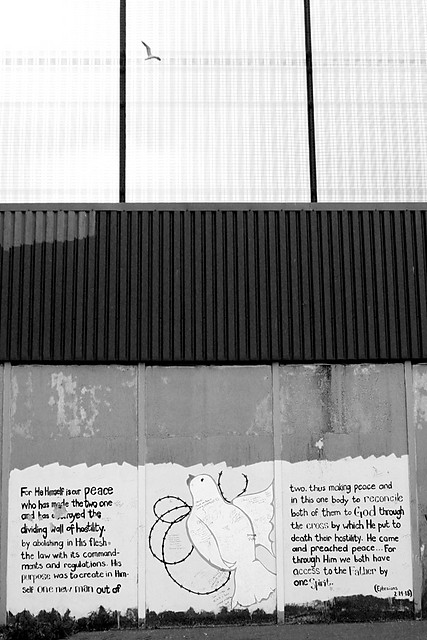 For He Himself is our peace
who has made the two one
and has destroyed the
dividing wall of hostility.
by abolishing in His flesh
the law with its command-
ments and regulations. His
purpose was to create in Him-
self one new man out of
two, thus making peace and
in this one body to reconcile
both of them to God through
the cross by which He put to
death their hostility. He came
and preached peace... For
through Him we both have
access to the Father by
one Spirit.
(Ephesians
2 14-18)